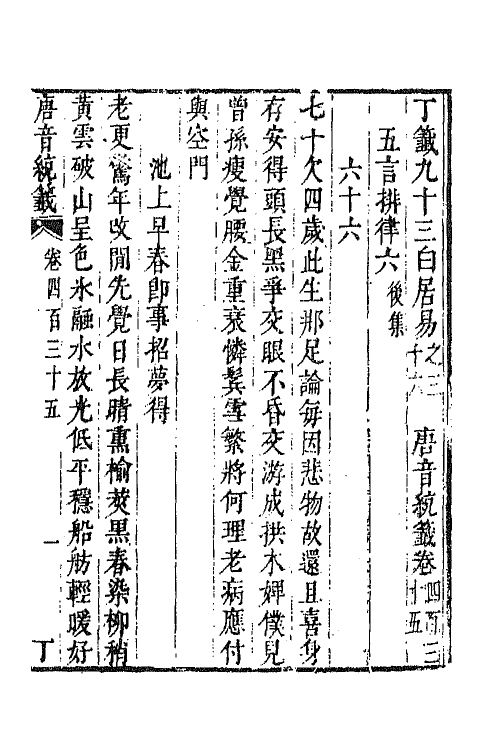 丁籤九十三白居易之三十六 唐音統籤卷四百三十五
五言排律六後集
六十六
七十欠四歲此生那足論每因悲物故還且喜身
存安得頭長黑爭交眼不昏交游成拱木婢僕見
曾孫瘦覺腰金重衰憐鬢雪繁將何理老病應付
與空門
池上早春即事招夢得
老更驚年改閒先覺日長晴熏榆莢黑春染柳梢
黃雲破山呈色氷融水放光低平穩船舫輕暖好
唐音統籤 卷四百三十五 一 丁